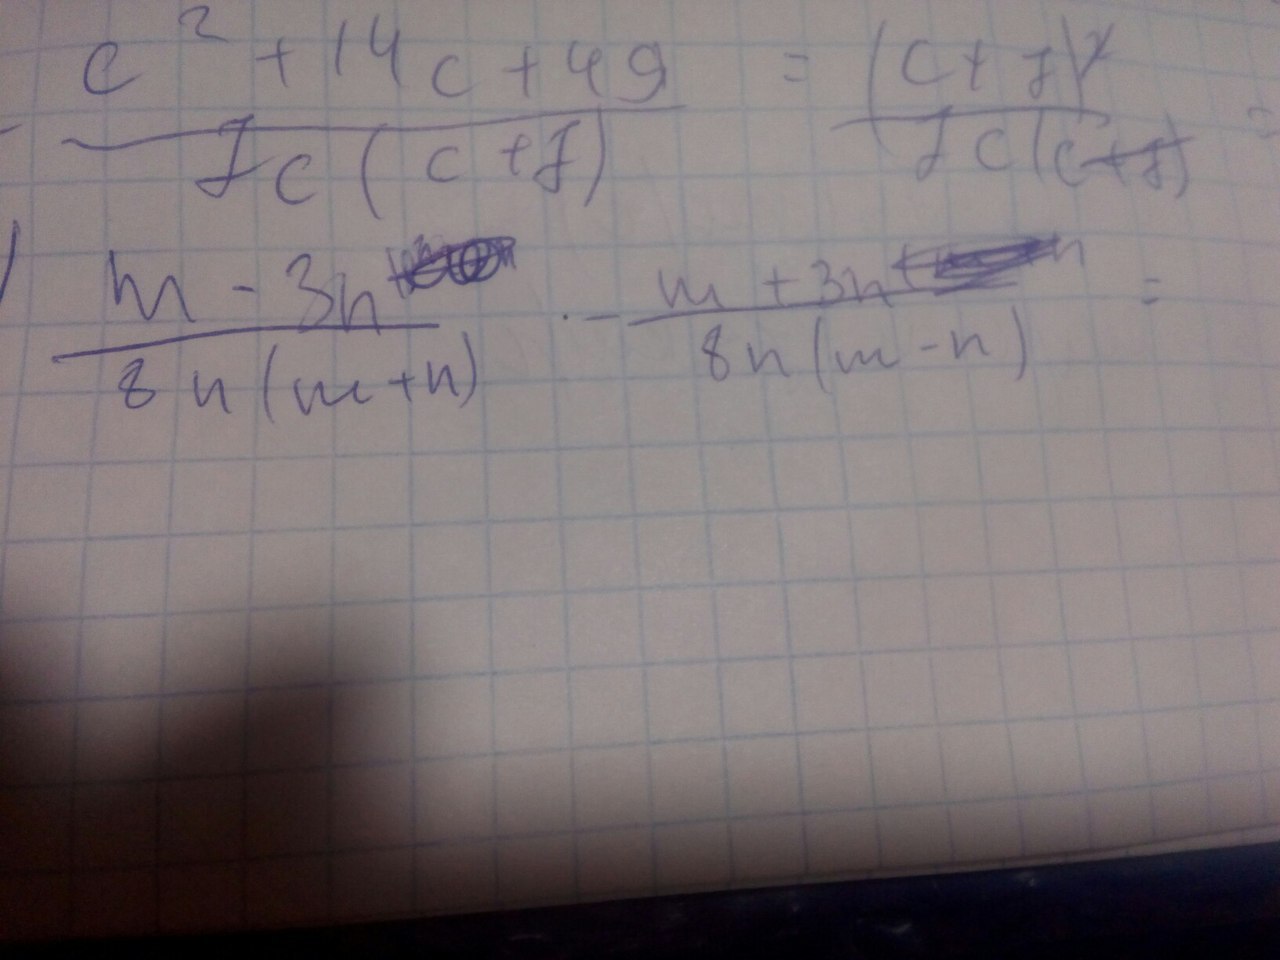 - c² + 14c + 49 / 7c(c + 7) = (c + 7)² / 7c(c + 7) =
) m - 3n / 8n(m + n) · - m + 3n / 8n(m - n) =